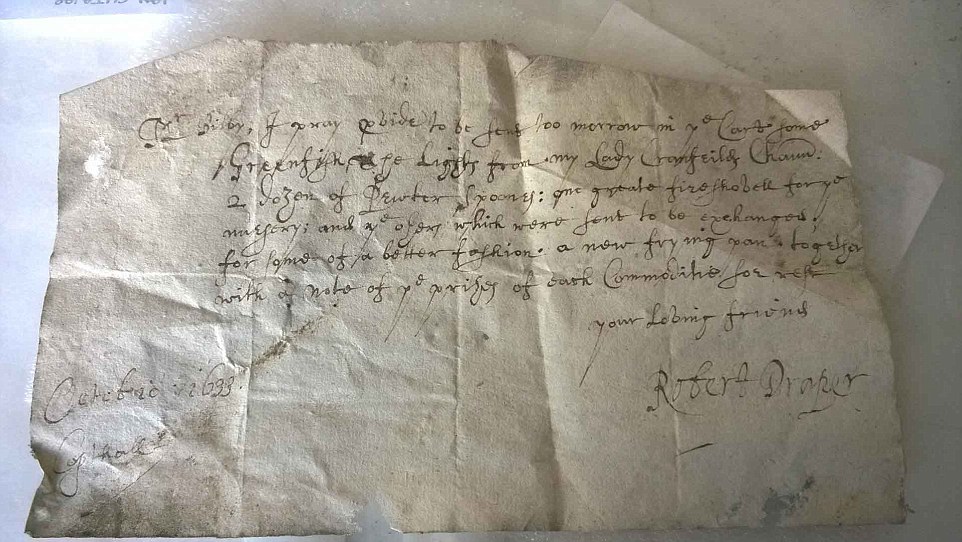 Mr Bilby, I pray pvide to be sent too morrow in ye Cart some
Greenfish, ye Lights from my Lady Cranfeilds Cham:
2 dozen of Pewter spoones: one greate fireshovell for ye
nursery: and ye oths which were sent to be exchanged
for some of a better fashion. a new frying pan together
with a note of ye prises of each Commoditie for rest
your loving friend
Robert Draper
Octobris 1633
Copthall